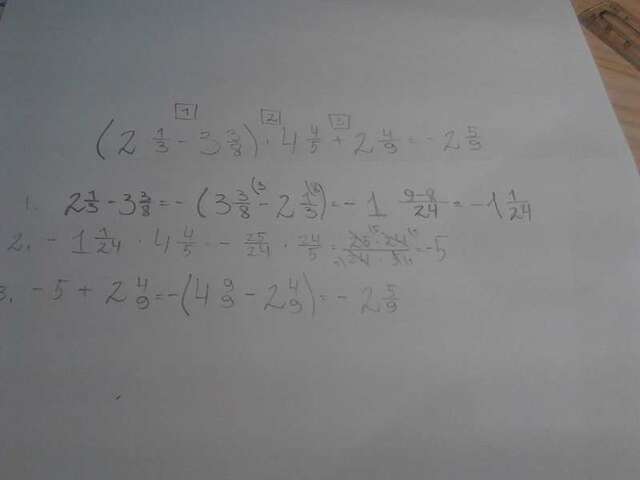 1 2 3
(2 1/3 - 3 3/8) · 4 4/5 + 2 4/9 = - 2 5/9
1. 2 1/3 - 3 3/8 = - (3 3/8 (3 - 2 1/3 (8) = - 1 9-8/24 = - 1 1/24
2. - 1 1/24 · 4 4/5 = - 25/24 · 24/5 = - 25 5 · 24 1/1 24 · 5 1 = -5
3. -5 + 2 4/9 = -(4 9/9 - 2 4/9) = - 2 5/9